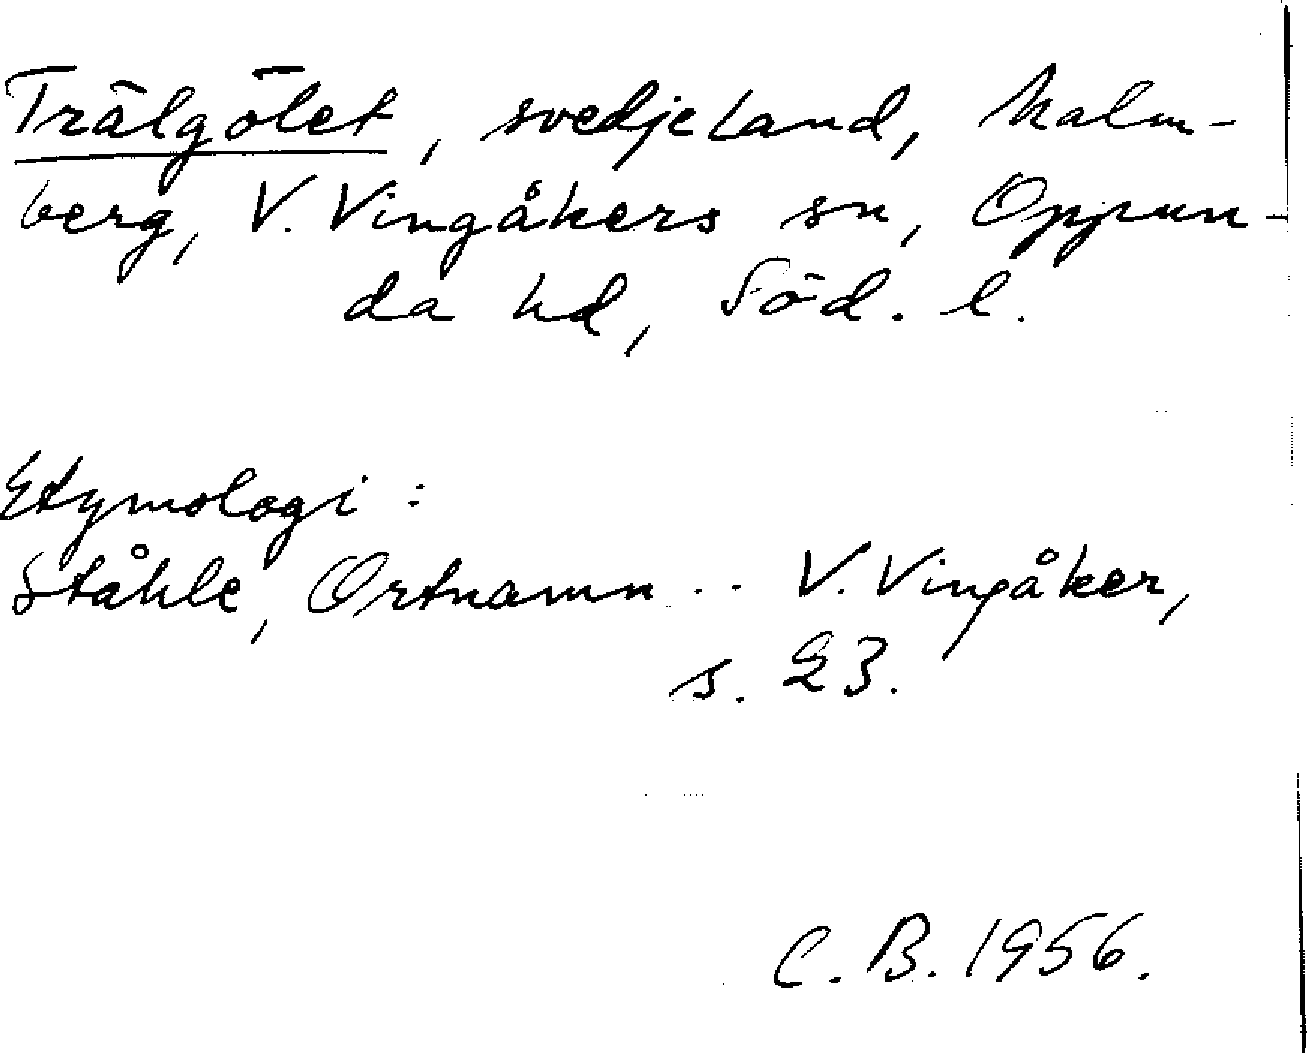 Trälgölet, svedjeland, Kalm-
berg, V. Vingåkers sn, Oppun-
da hd, Söd. l.
Etymologi:
Ståhle, Ortnamn .. V. Vingåker,
s. 23.
C. B. 1956.